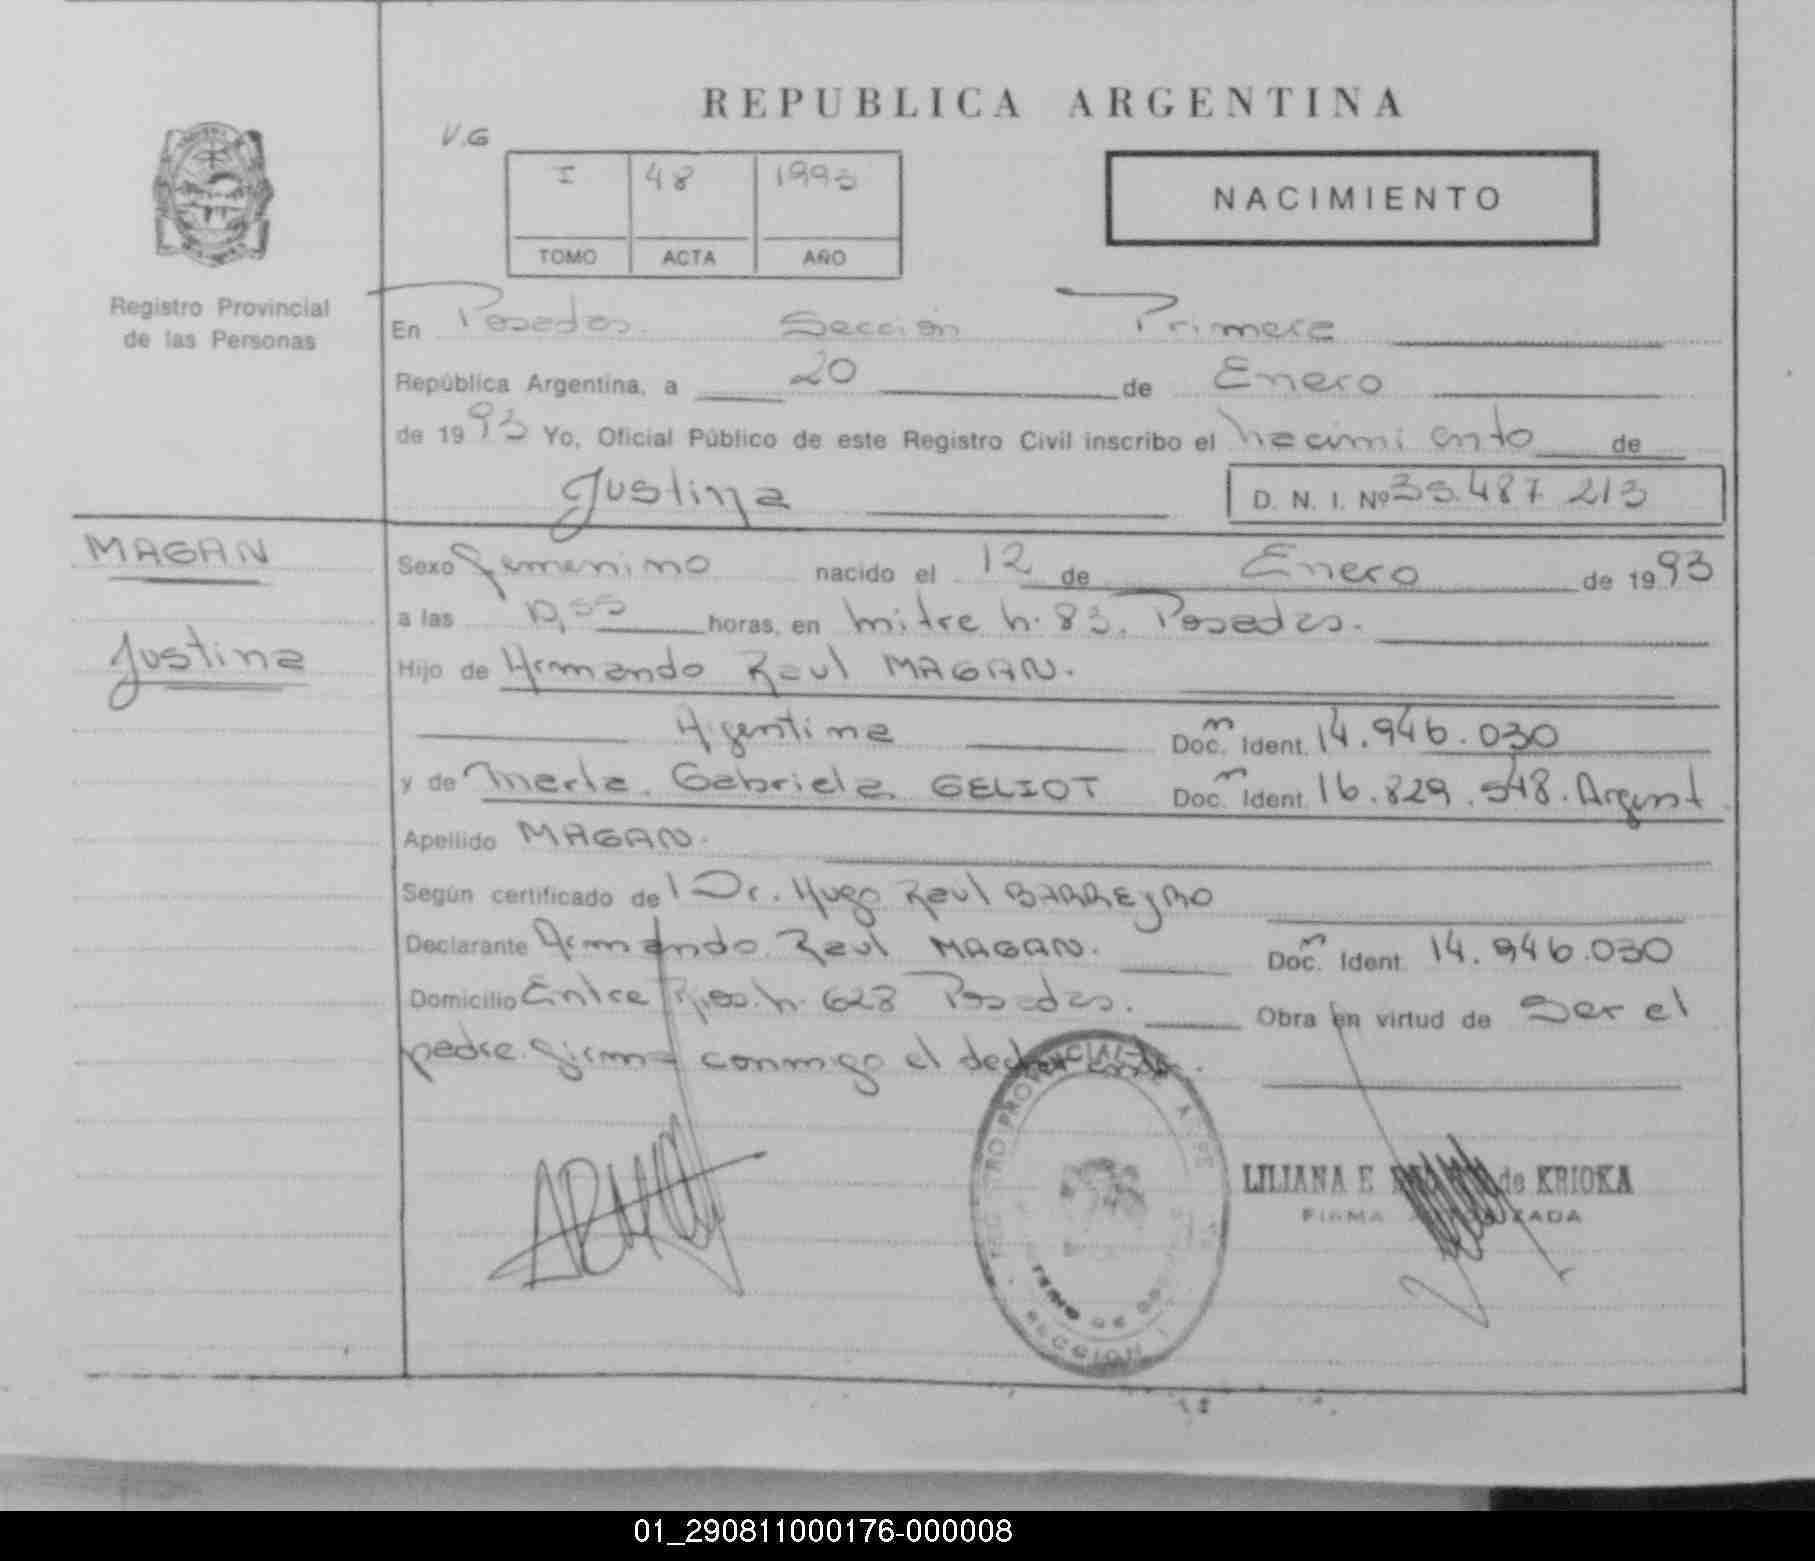 REPUBLICA ARGENTINA
V.G
I 48 1993
TOMO ACTA AÑO
NACIMIENTO
Registro Provincial
de las Personas
En Posadas Sección Primera
República Argentina, a 20 de Enero
de 1993 Yo, Oficial Público de este Registro Civil inscribo el nacimiento de
Justina D. N. I. Nº 35.487.213
MAGAN
Justina
Sexo femenino nacido el 12 de Enero de 1993
a las horas, en Mitre n. 83. Posadas.
Hijo de Armando Raul MAGAN.
Argentina Doc. Ident. 14.946.030
y de Maria Gabriela GELIOT Doc. Ident. 16.829.548. Argent
Apellido MAGAN.
Según certificado del Dr. Hugo Raul BARREYRO
Declarante Armando Raul MAGAN. Doc. Ident. 14.946.030
Domicilio Entre Rios n. 628 Posadas. Obra en virtud de Ser el
padre. firma conmigo el declarante.
LILIANA E de KRIOKA
FIRMA AUTORIZADA
01_290811000176-000008